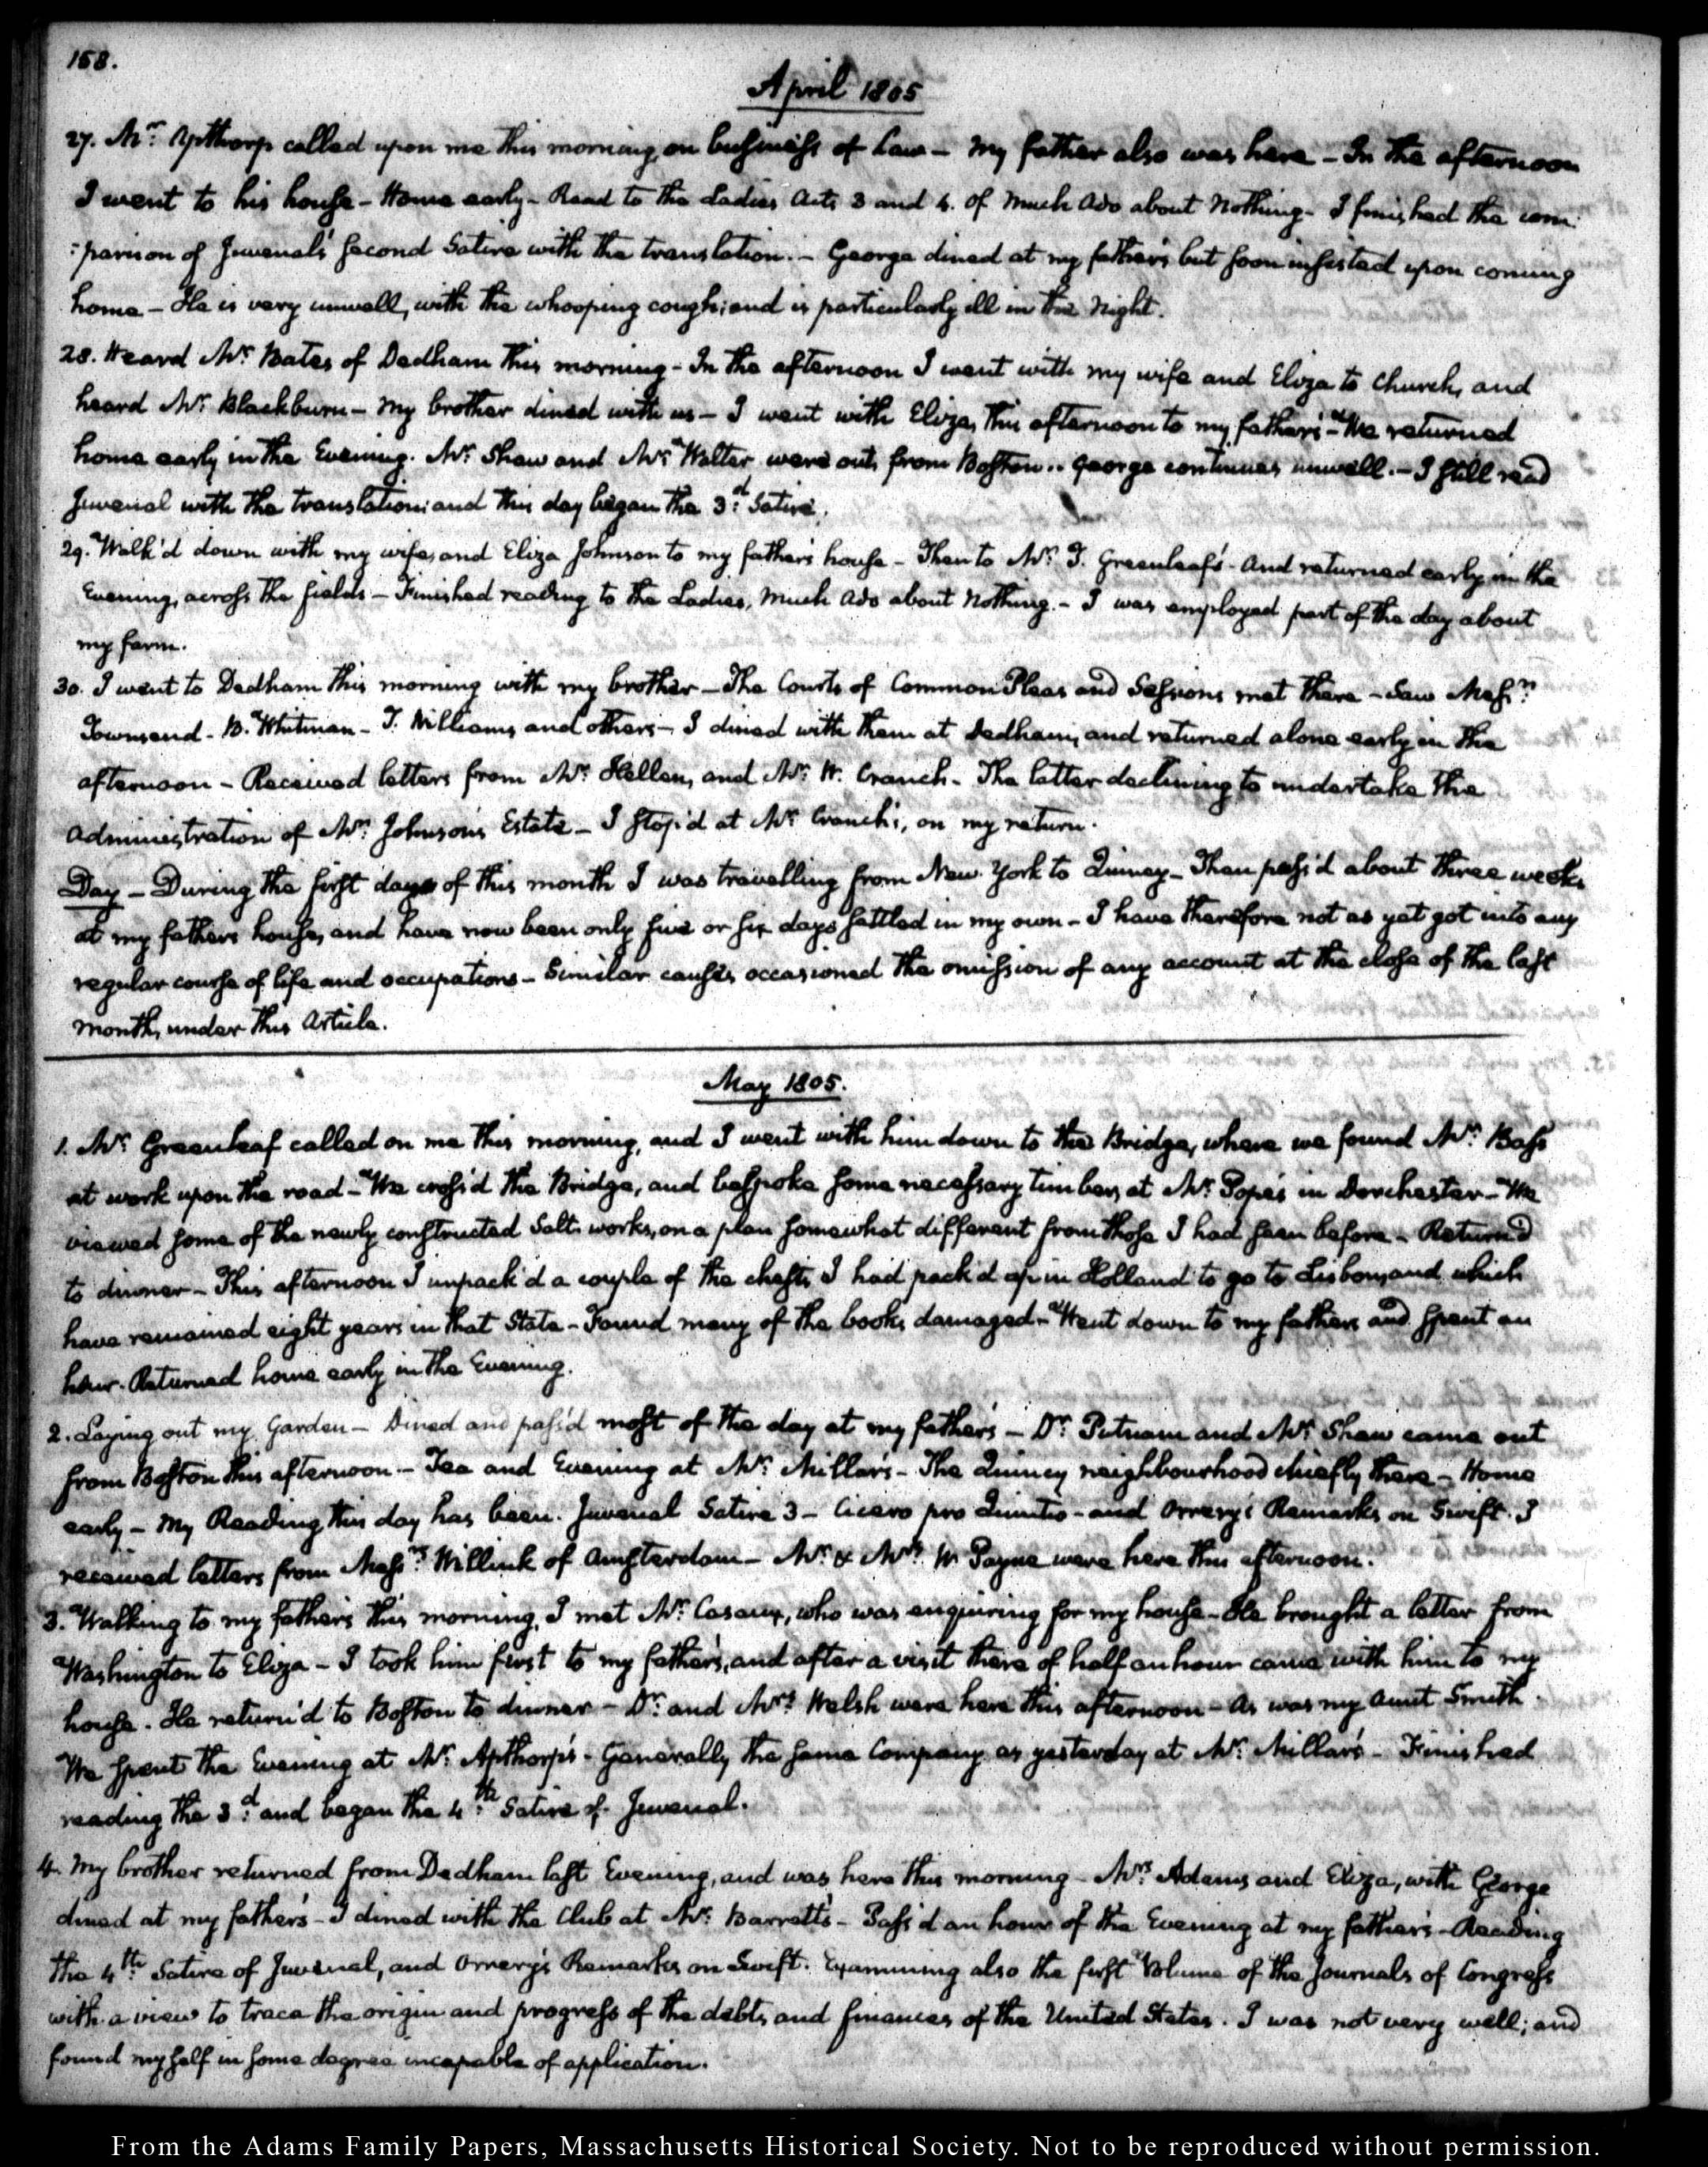 158.
April 1805
27. Mr. Apthorp called upon me this morning, on business of Law – My father also was here – In the afternoon
I went to his house – Home early – Read to the Ladies Acts 3 and 4. of Much Ado about Nothing – I finished the com:
:parison of Juvenal's second Satire with the translation. – George dined at my father's but soon insisted upon coming
home – He is very unwell, with the whooping cough; and is particularly ill in the Night.
28. Heard Mr. Bates of Dedham this morning – In the afternoon I went with my wife and Eliza to Church, and
heard Mr. Blackburn – My brother dined with us – I went with Eliza, this afternoon to my father's – We returned
home early in the Evening. Mr. Shaw and Mr. Walter were out, from Boston.. George continues unwell. – I still read
Juvenal with the translation; and this day began the 3d. Satire.
29. Walk'd down with my wife, and Eliza Johnson to my father's house – Then to Mr. T. Greenleaf's – And returned early in the
Evening, across the fields – Finished reading to the Ladies, Much Ado about Nothing. – I was employed part of the day about
my farm.
30. I went to Dedham this morning with my brother – The Courts of Common Pleas and Sessions met there – Saw Messrs.
Townsend – B. Whitman – T. Williams, and others – I dined with them at Dedham, and returned alone early in the
afternoon – Received letters from Mr. Hellen, and Mr. W. Cranch – The latter declining to undertake the
Administration of Mr. Johnson's Estate – I stop'd at Mr. Cranch's, on my return.
Day – During the first days of this month I was travelling from New York to Quincy – Then pass'd about three weeks
at my fathers house, and have now been only five or six days settled in my own – I have therefore not as yet got into any
regular course of life and occupations – Similar causes occasioned the omission of any account at the close of the last
month, under this Article.
May 1805.
1. Mr. Greenleaf called on me this morning, and I went with him down to the Bridge, where we found Mr. Bass
at work upon the road – We cross'd the Bridge, and bespoke some necessary timbers, at Mr. Pope's in Dorchester – We
viewed some of the newly constructed Salt works, on a plan somewhat different from those I had seen before – Return'd
to dinner – This afternoon I unpack'd a couple of the chests, I had pack'd up in Holland to go to Lisbon, and which
have remained eight years in that State – Found many of the books damaged – Went down to my fathers and spent an
hour. Returned home early in the Evening.
2. Laying out my Garden – Dined and pass'd most of the day at my father's – Dr. Putnam and Mr. Shaw came out
from Boston this afternoon – Tea and Evening at Mr. Millar's – The Quincy neighbourhood chiefly there – Home
early – My Reading this day has been. Juvenal Satire 3 – Cicero pro Quintio – and Orrery's Remarks on Swift. I
received letters from Messrs. Willink of Amsterdam – Mr. & Mrs. W. Payne were here this afternoon.
3. Walking to my father's this morning, I met Mr. Casaux, who was enquiring for my house – He brought a letter from
Washington to Eliza – I took him first to my father's, and after a visit there of half an hour came with him to my
house. He return'd to Boston to dinner – Dr. and Mrs. Welsh were here this afternoon – As was my Aunt Smith.
We spent the Evening at Mr. Apthorp's – Generally the same Company as yesterday at Mr. Millar's – Finished
reading the 3d. and began the 4th. Satire of Juvenal.
4. My brother returned from Dedham last Evening, and was here this morning – Mrs. Adams and Eliza, with George
dined at my father's – I dined with the Club at Mr. Barrett's – Pass'd an hour of the Evening at my father's – Reading
the 4th. Satire of Juvenal, and Orrery's Remarks on Swift. Examining also the first Volume of the Journals of Congress
with a view to trace the origin and progress of the debts, and finances of the United States. I was not very well; and
found myself in some degree incapable of application.
From the Adams Family Papers, Massachusetts Historical Society. Not to be reproduced without permission.